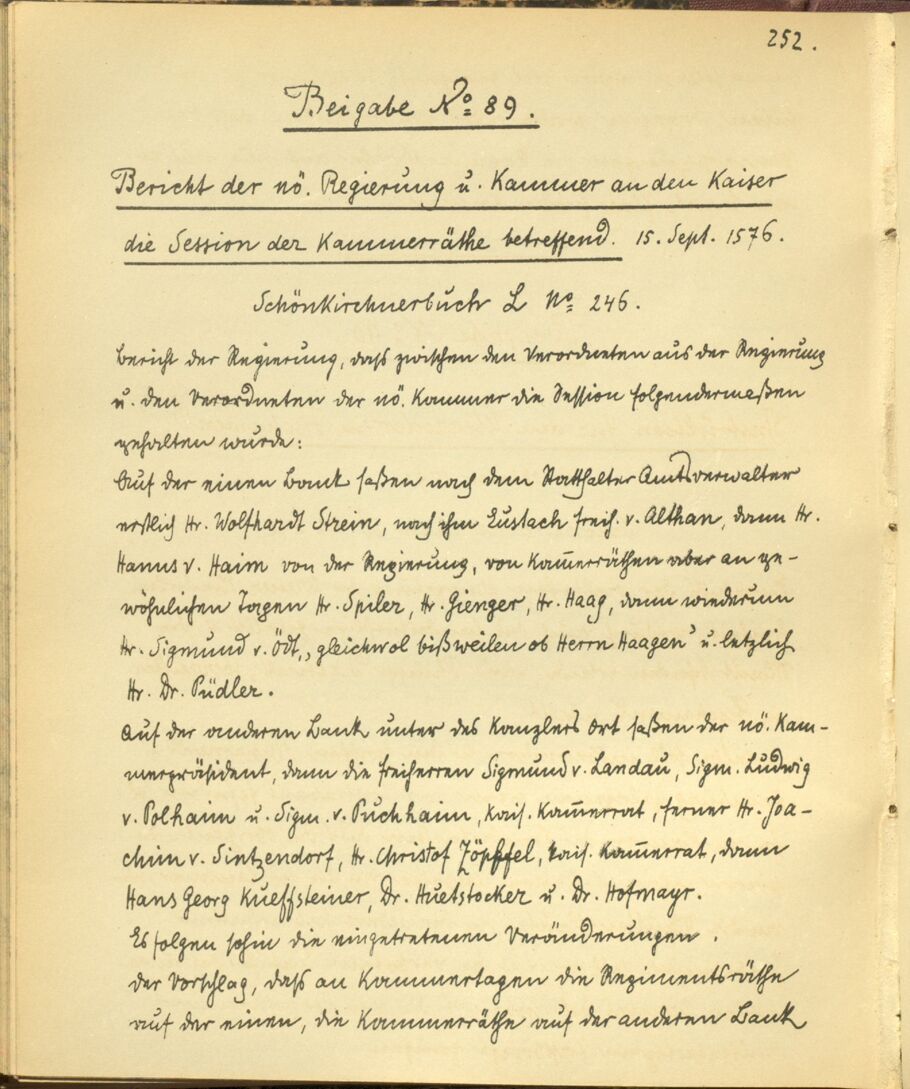 252.
Beigabe No 89.
Bericht der nö. Regierung u. Kammer an den Kaiser
die Session der Kammerräthe betreffend. 15. Sept. 1576.
Schönkirchnerbuch L No 246.
Bericht der Regierung, dass zwischen den Verordneten aus der Regierung
u. den Verordneten der nö. Kammer die Session folgendermeßen
gehalten wurde:
Auf der einen Bank saßen nach dem Statthalter Amtsverwalter
erstlich Hr. Wolfhardt Strein, nach ihm Eustach freih. v. Althan, dann Hr.
Hanns v. Haim von der Regierung, von Kam̄erräthen aber an ge-
wöhnlichen Tagen Hr. Spiler, Hr. Gienger, Hr. Haag, dann wiederum
Hr. Sigmund v. Ödt, „gleichwol bißweilen ob Herrn Haagen“ u. letzlich
Hr. Dr. Püdler.
Auf der anderen Bank unter des Kanzlers Ort saßen der nö. Kam-
merpräsident, dann die freiherren Sigmund v. Landau, Sigm. Ludwig
v. Polhaim u. Sigm. v. Puchhaim, Kais. Kam̄errat, ferner Hr. Joa-
chim v. Sintzendorf, Hr. Christof Zöpffel, kais. Kam̄errat, dann
Hans Georg Kueffsteiner, Dr. Huetstocker u. Dr. Hofmayr.
Es folgen sohin die eingetretenen Veränderungen.
Der Vorschlag, dass an Kammertagen die Regimentsräthe
auf der einen, die Kammerräthe auf der anderen Bank